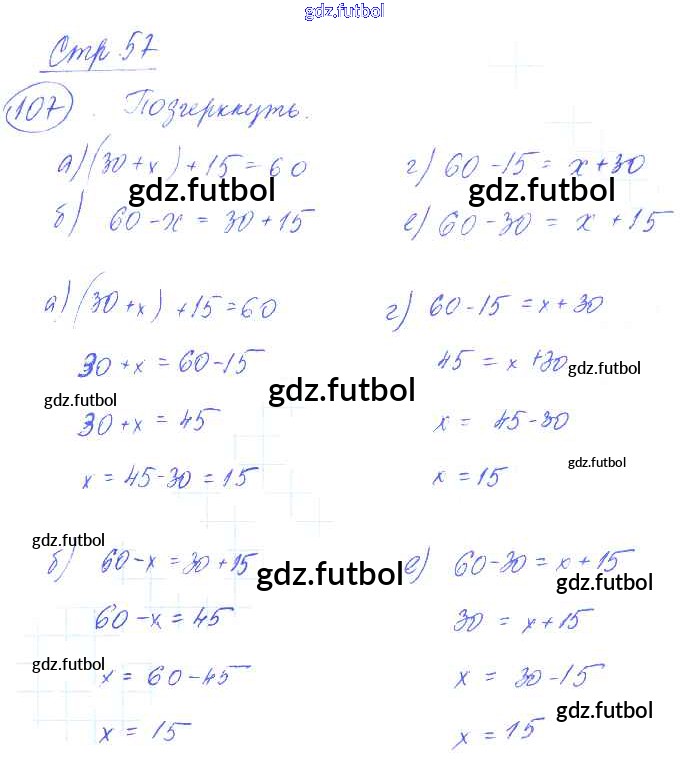 gdz.futbol
Стр 57
107. Подчеркнуть.
а) (30+x)+15=60
г) 60-15=x+30
gdz.futbol
gdz.futbol
б) 60-x=30+15
е) 60-30=x+15
а) (30+x)+15=60
г) 60-15=x+30
30+x=60-15
45=x+30
gdz.futbol
gdz.futbol
gdz.futbol
30+x=45
x=45-30
x=45-30=15
x=15
gdz.futbol
gdz.futbol
б) 60-x=30+15
gdz.futbol
е) 60-30=x+15
gdz.futbol
60-x=45
30=x+15
gdz.futbol
x=60-45
x=30-15
x=15
x=15
gdz.futbol